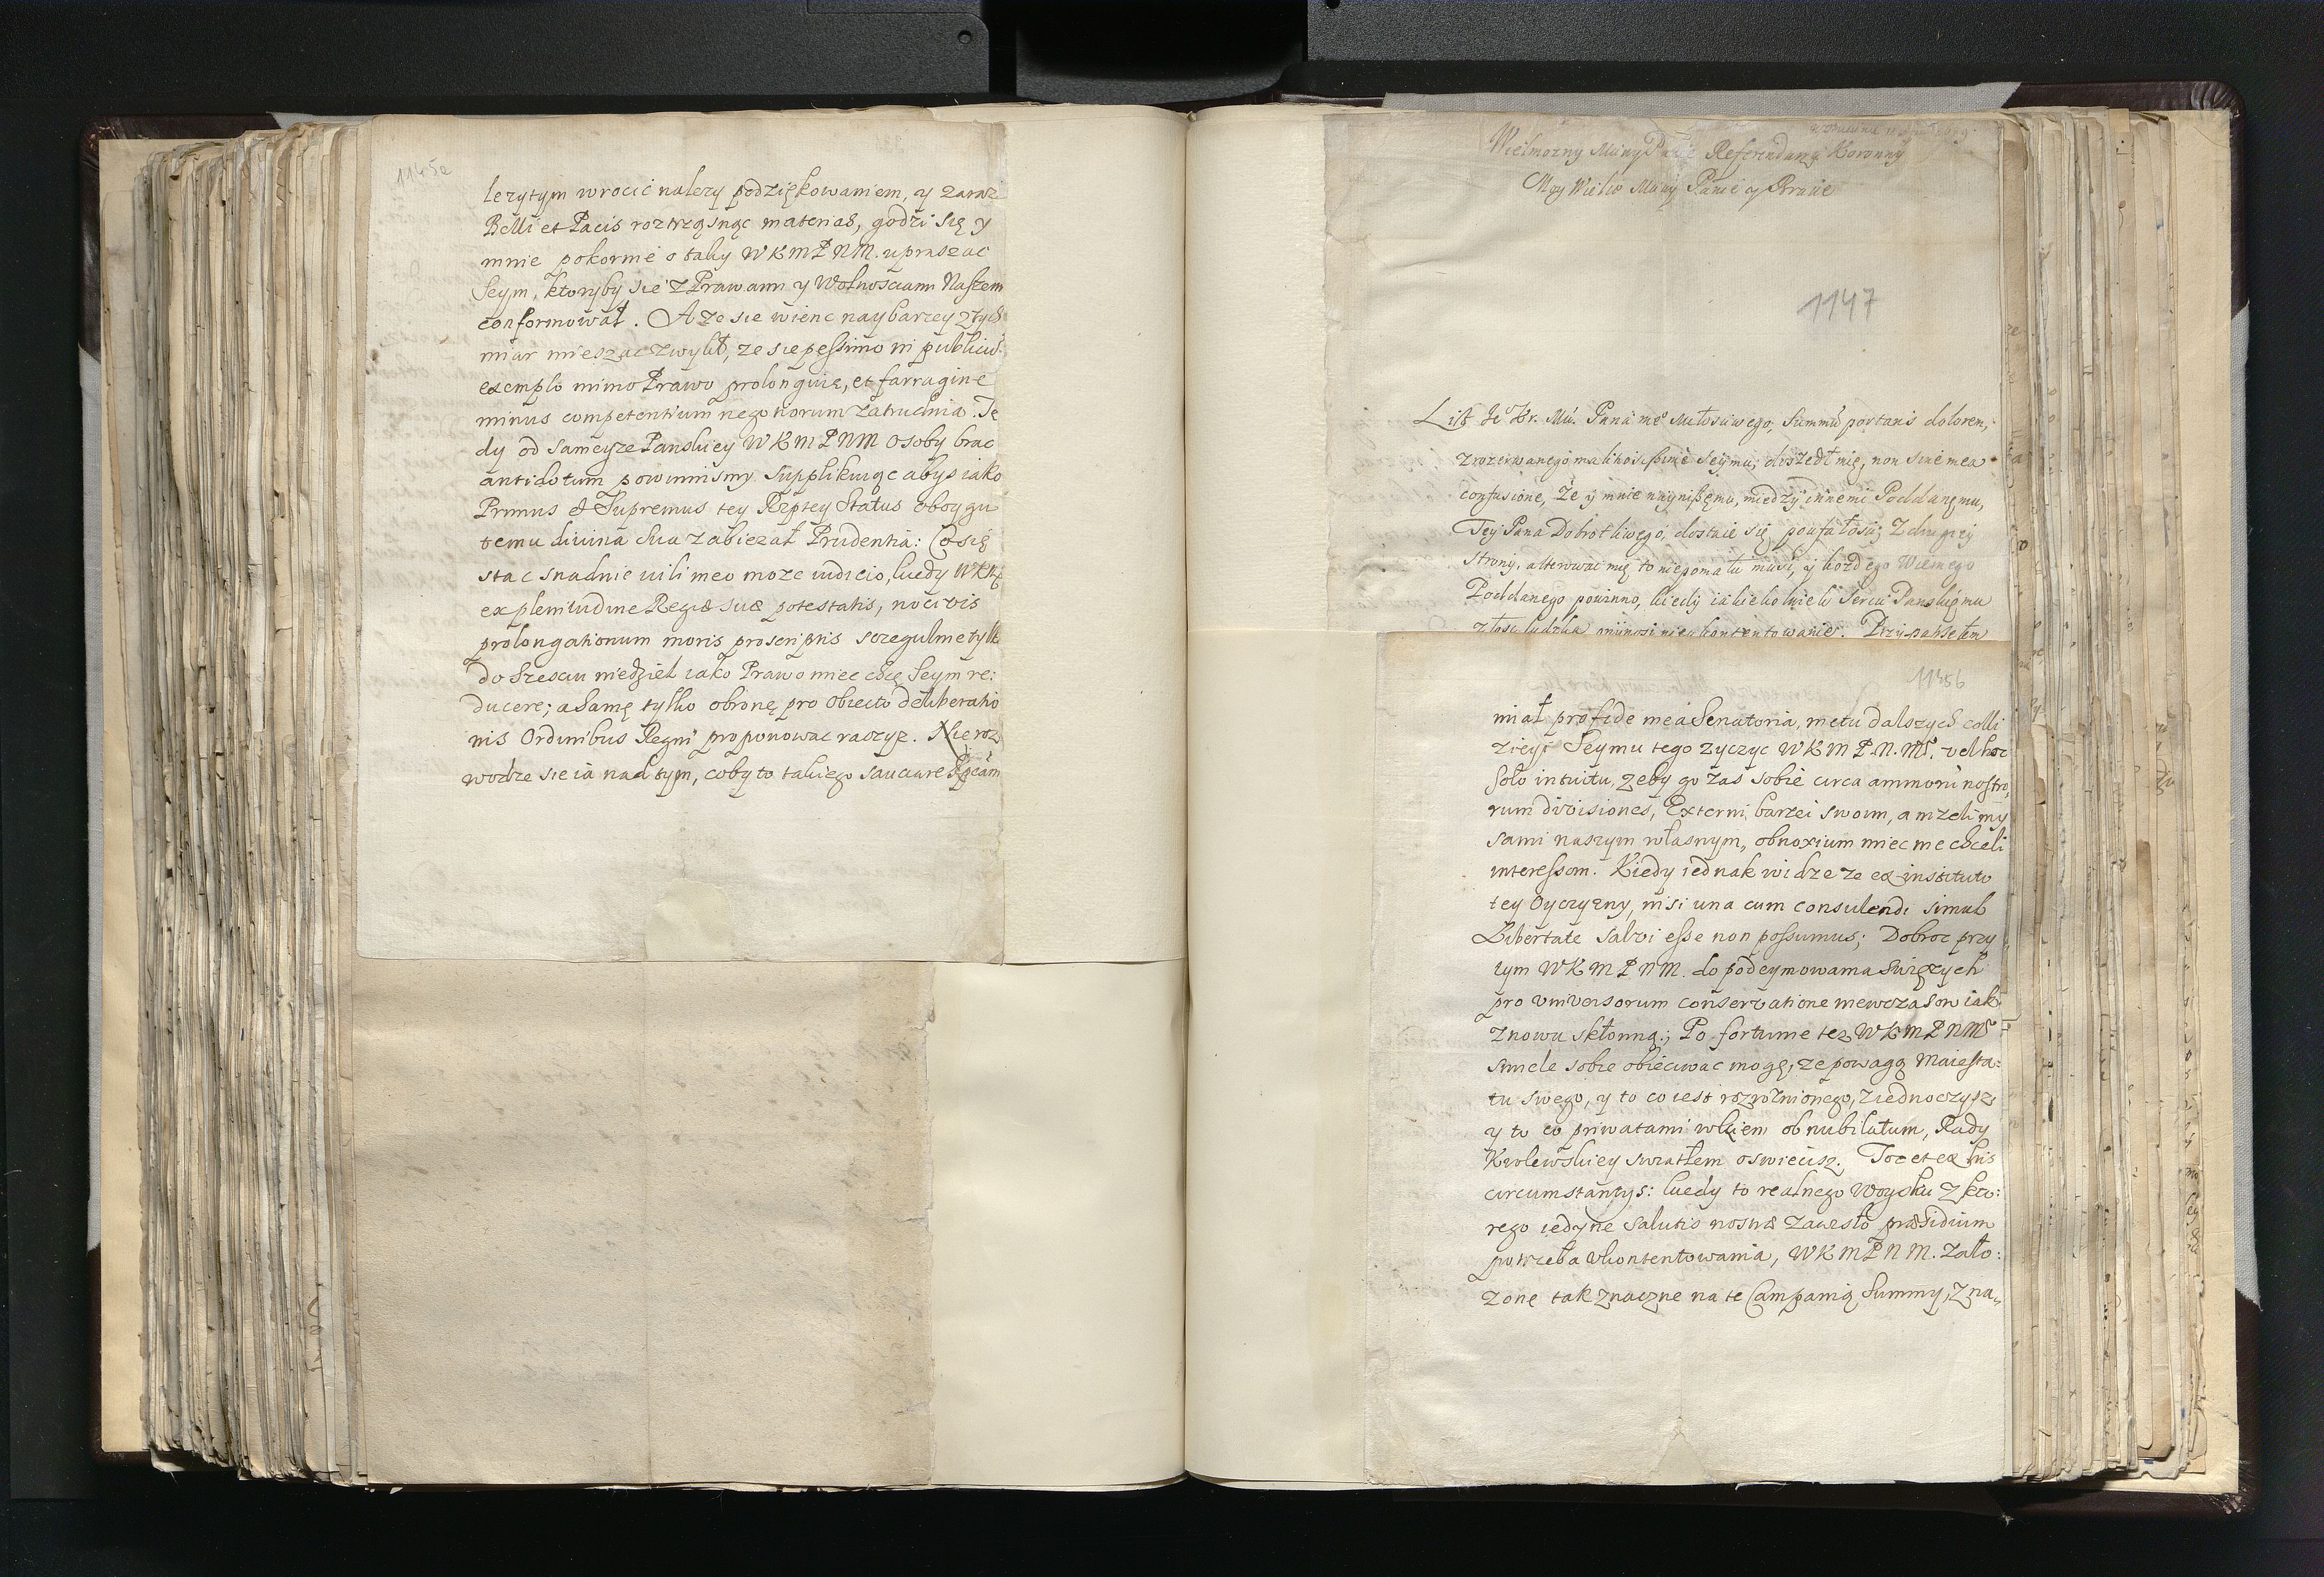 1145a
lezytym wrocić nalezy podziękowaniem, y zaraz
Belli et Pacis roztrząsnąc materias, godzi się y
mnie pokornie o taky WKMPNM. upraszac
Seym, ktoryby sie z Prawami y Wolnosciami Naszem
conformował. A ze sie wienc naybarzey z tych
miar mieszac zwykł, ze sie pessimo in publicis
exemplo mimo Prawo prolonguie, et farragine
minus competentium negotiorum zatrudnia. Te
dy od sameyze Panskiey WKMPNM osoby brac
antidotum powinnismy. Supplikuiąc abys iako
Primus & Supremus tey Rzptey Status oboygu
temu divina sua zabiezał Prudentia: Co się
stac snadnie vili meo moze iudicio, kiedy WKM
ex plenitudine Regiæ suæ potestatis, nocivis
prolongationum moris proscriptis szczegulnie tylk
do szesciu niedziel iako Prawo miec chcę Seym re:
ducere; a samę tylko obronę pro obiecto deliberatio
nis Ordinibus Regni proponowac raczysz. Nie roz
wodze sie ia nad tym, coby to takiego sauciare Rpcam
Wielmozny Miiny Panie Referendarzu Koronny
Moy Wielce Miiny Panie y Bracie
1147
List Je° Kr. Mći. Pana me° Miłosciwego, summũ portans dolorem,
z rozerwanego malitiosissimè Seymu, doszedł mię, non sine mea
confusione, Że y mnie nayniższemu, między innemi Poddanęmu,
Tey Pana Dobrotliwego, dostaie się poufałosci; Z drugiey
strony, alterować mię to niepomału musi, y kozdego Wiernego
Poddanego powinno, kiedy iakiekolwiek Sercu Panskiemu
złosc ludzka przynosi nieukontentowanie. Przypatrsełem
1145b
miał pro fide mea Senatoria, metu dalszych colli
ziey Seymu tego zyczyc WKMP.N.M. vel hoc
solo intuitu, zeby go zas sobie circa animorũ nostro,
rum divisiones, Externi barzei swoim, anizeli my
sami naszym własnym, obnoxium miec nie chcieli
interessom. Kiedy iednak widze ze ex instituto
tey Oyczyzny, nisi una cum consulendi simul
Libertate salvi esse non possumus; Dobroc przy
tym WKMPNM. do podeymowania swięzych
pro universorum conservatione niewczasow iak
znowu skłonną; Po fortunie tez WKMPNM
smiele sobie obieciwac mogę, ze powagą Maiesta:
tu swego, y to co iest rozroznionego, ziednoczysz,
y to co priwatami wkiem obnubilatum, Rady
Krolewskiey swiatłem oswiecisz. Toc et ex his
circumstantijs: kiedy to realnego woysku z kto:
rego iedyne salutis nostræ zawisło præsidium
potrzeba ukontentowania, WKMPNM. zało:
zonę tak znaczne na te Campanią Summy, zna,